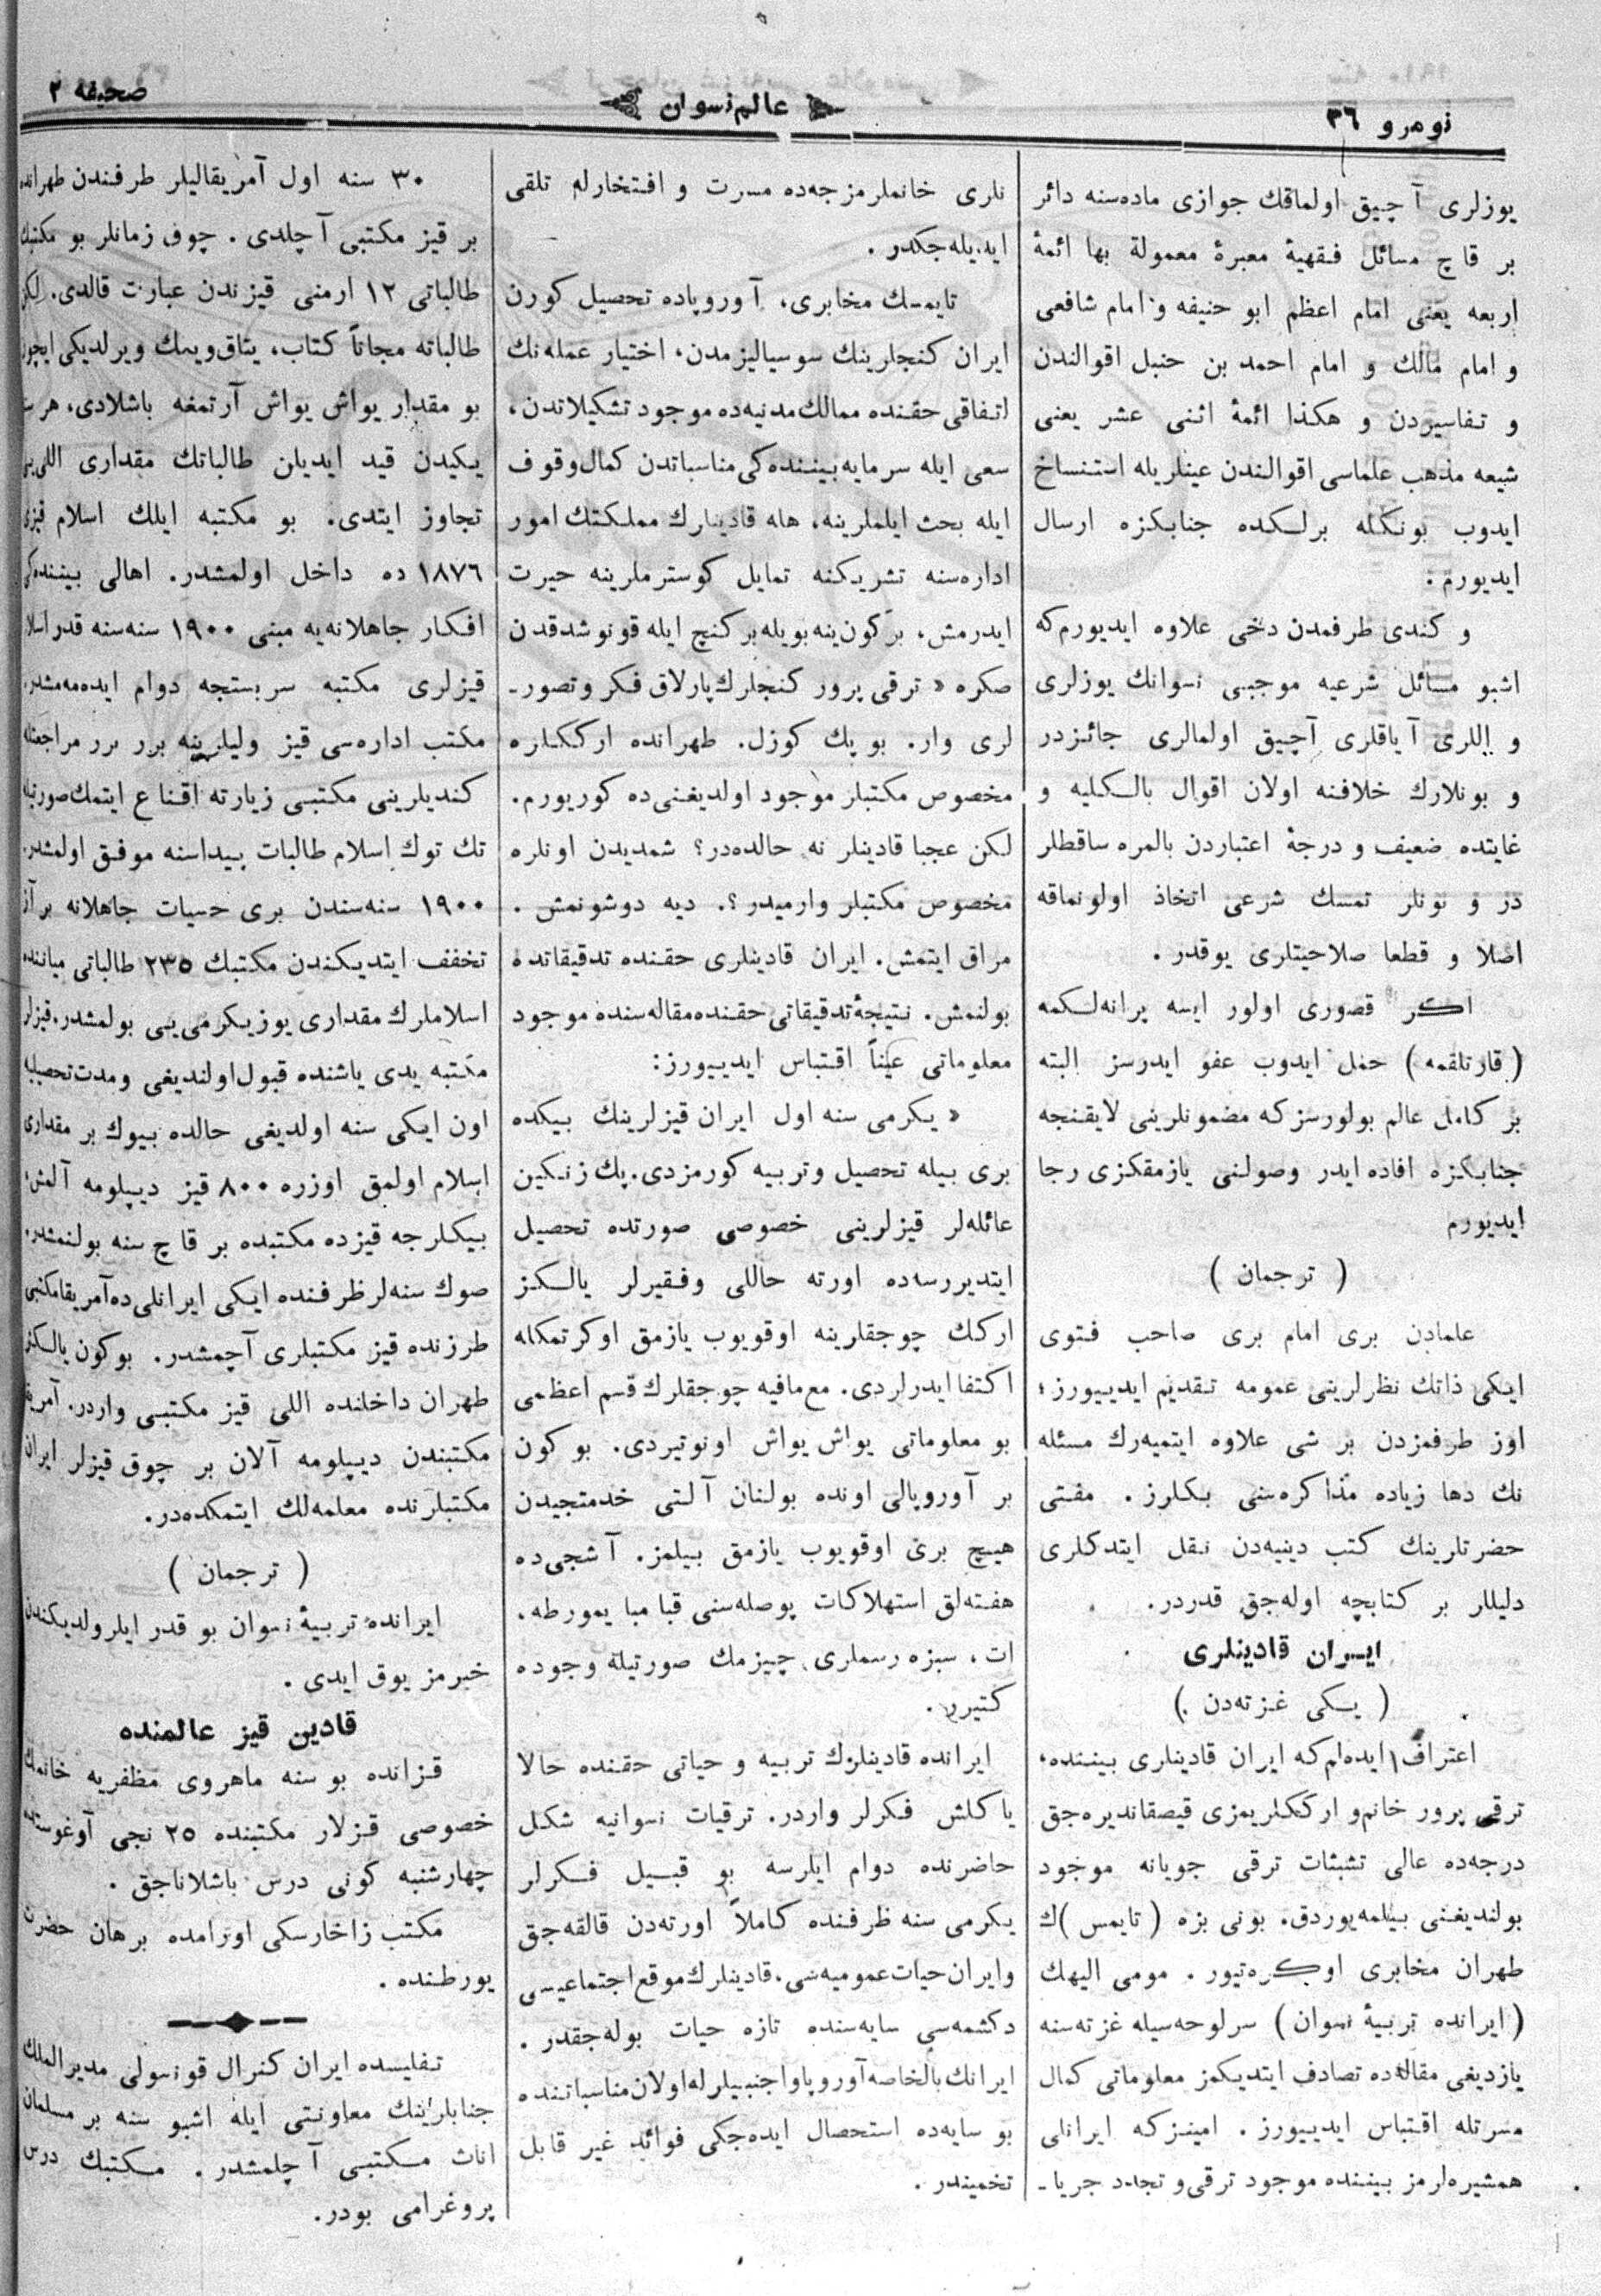 نومرو ٣٦
عالم نسوان
صحيفه ٢
يوزلرى آچيق اولماقك جوازى ماده‌سنه دائر
بر قاچ مسائل فقهيهٔ معبرهٔ معمولة بها ائمهٔ
اربعه يعنى امام اعظم ابو حنيفه و امام شافعى
و امام مالك و امام احمد بن حنبل اقوالندن
و تفاسيردن و هكذا ائمهٔ اثنى عشر يعنى
شيعه مذهب علماسى اقوالندن عينلريله استنساخ
ايدوب بونكله برلكده جنابكزه ارسال
ايديورم.
و كندى طرفمدن دخى علاوه ايديورم كه
اشبو مسائل شرعيه موجبى نسوانك يوزلرى
و اللرى آياقلرى آچيق اولمالرى جائزدر
و بونلارك خلافنه اولان اقوال بالكليه و
غايتده ضعيف و درجهٔ اعتباردن بالمره ساقطلر
در و نونلر تمسك شرعى اتخاذ اولونماقه
اصلا و قطعا صلاحيتلرى يوقدر.
اكر قصورى اولور ايسه پرانه‌لكمه
(قارتلقمه) حمل ايدوب عفو ايدرسز البته
بر كامل عالم بولورسزكه مضمونلرينى لايقنجه
جنابكزه افاده ايدر وصولنى يازمقكزى رجا
ايديورم
(ترجمان)
علمادن برى امام برى صاحب فتوى
ايكى ذاتك نظرلرينى عمومه تقديم ايدييورز؛
اوز طرفمزدن بر شى علاوه ايتميه‌رك مسئله
نك دها زياده مذاكره‌سنى بكلرز. مفتى
حضرتلرينك كتب دينيه‌دن نقل ايتدكلرى
دليللر بر كتابچه اوله‌جق قدردر.
ايران قادينلرى
(يكى غزته‌دن)
اعتراف ايده‌لم كه ايران قادينلرى بيننده،
ترقى پرور خانم و اركلريمزى قيصقانديره‌جق
درجه‌ده عالى تشبثات ترقى جويانه موجود
بولنديغنى بيلمه‌يوردق. بونى بزه (تايمس)ك
طهران مخابرى اوكره‌تيور. مومى اليهك
(ايرانده تربيهٔ نسوان) سرلوحه‌سيله غزته‌سنه
يازديغى مقاله‌ده تصادف ايتديكمز معلوماتى كمال
مسرتله اقتباس ايدييورز. امينزكه ايرانلى
همشيره‌لرمز بيننده موجود ترقى و تجدد جريا-
نلرى خانملرمزجه‌ده مسرت و افتخارله تلقى
ايديله‌جكدر.
تايمسك مخابرى، آوروپاده تحصيل كورن
ايران كنجلرينك سوسياليزمدن، اختيار عمله‌نك
اتفاقى حقنده ممالك مدنيه‌ده موجود تشكيلاتدن،
سعى ايله سرمايه بيننده‌كى مناسباتدن كمال وقوف
ايله بحث ايلملرينه، هله قادينلرك مملكتك امور
اداره‌سنه تشريكنه تمايل كوسترملرينه حيرت
ايدرمش، بر كون ينه بويله بر كنچ ايله قونوشدقدن
صكره «ترقى پرور كنجلرك پارلاق فكر و تصور-
لرى وار. بو پك كوزل. طهرانده اركلره
مخصوص مكتبلر موجود اولديغنى‌ده كوريورم.
لكن عجبا قادينلر نه حالده‌در؟ شمديدن اونلره
مخصوص مكتبلر وارميدر؟. ديه دوشونمش.
مراق ايتمش. ايران قادينلرى حقنده تدقيقاتده
بولنمش. نتيجهٔ تدقيقاتى حقنده مقاله‌سنده موجود
معلوماتى عيناً اقتباس ايدييورز:
«يكرمى سنه اول ايران قيزلرينك بيكده
برى بيله تحصيل و تربيه كورمزدى. پك زنكين
عائله‌لر قيزلرينى خصوصى صورتده تحصيل
ايتديررسه‌ده اورته حاللى و فقيرلر يالكز
اركك چوجقلرينه اوقويوب يازمق اوكرتمكله
اكتفا ايدرلردى. مع مافيه چوجقلرك قسم اعظمى
بو معلوماتى يواش يواش اونوتيردى. بو كون
بر آوروپالى اونده بولنان آلتى خدمتجيدن
هيچ برى اوقويوب يازمق بيلمز. آشجى‌ده
هفته‌لق استهلاكات پوصله‌سنى قبا مبا يمورطه،
ات، سبزه رسملرى چيزمك صورتيله وجوده
كتيرر.
ايرانده قادينلرك تربيه و حياتى حقنده حالا
ياكلش فكرلر واردر. ترقيات نسوانيه شكل
حاضرنده دوام ايلرسه بو قبيل فكرلر
يكرمى سنه ظرفنده كاملاً اورته‌دن قالقه‌جق
و ايران حيات عموميه‌سى، قادينلرك موقع اجتماعيسى
دكشمه‌سى سايه‌سنده تازه حيات بوله‌جقدر.
ايرانك بالخاصه آوروپا و اجنبيلرله اولان مناسباتنده
بو سايه‌ده استحصال ايده‌جكى فوائد غير قابل
تخميندر.
٣٠ سنه اول آمريقاليلر طرفندن طهرانده
بر قيز مكتبى آچلدى. چوق زمانلر بو مكتبك
طالباتى ١٢ ارمنى قيزندن عبارت قالدى. لكن
طالباته مجاناً كتاب، يتاق ويمك ويرلديكى ايچون
بو مقدار يواش يواش آرتمغه باشلادى، هر
يكيدن قيد ايديلن طالباتك مقدارى اللى‌يى
تجاوز ايتدى. بو مكتبه ايلك اسلام قيزى
١٨٧٦ ده داخل اولمشدر. اهالى بيننده‌كى
افكار جاهلانه‌يه مبنى ١٩٠٠ سنه‌سنه قدر اسلام
قيزلرى مكتبه سربستجه دوام ايده‌مه‌مشدر.
مكتب اداره‌سى قيز وليلرينه برر برر مراجعتله
كنديلرينى مكتبى زيارته اقناع ايتمك صورتيله
تك توك اسلام طالبات پيداسنه موفق اولمشدر.
١٩٠٠ سنه‌سندن برى حسيات جاهلانه بر آز
تخفف ايتديكندن مكتبك ٢٣٥ طالباتى مياننده
اسلاملرك مقدارى يوز يكرمى‌يى بولمشدر. قيزلر
مكتبه يدى ياشنده قبول اولنديغى و مدت تحصيليه
اون ايكى سنه اولديغى حالده بيوك بر مقدارى
اسلام اولمق اوزره ٨٠٠ قيز ديپلومه آلمش،
بيكلرجه قيزده مكتبده بر قاچ سنه بولنمشدر.
صوك سنه‌لر ظرفنده ايكى ايرانلى‌ده آمريقا مكتبى
طرزنده قيز مكتبلرى آچمشدر. بو كون يالكز
طهران داخلنده اللى قيز مكتبى واردر. آمريقا
مكتبندن ديپلومه آلان بر چوق قيزلر ايران
مكتبلرنده معلمه‌لك ايتمكده‌در.
(ترجمان)
ايرانده تربيهٔ نسوان بو قدر ايلرولديكندن
خبرمز يوق ايدى.
قادين قيز عالمنده
قزانده بو سنه ماهروى مظفريه خانمك
خصوصى قزلار مكتبنده ٢٥ نجى آوغوستده
چهارشنبه كونى درس باشلاناجق.
مكتب زاخارسكى اورامده برهان حضرت
يورطنده.
تفليسده ايران كنرال قونسولى مديرالملك
جنابلرينك معاونتى ايله اشبو سنه بر مسلمان
اناث مكتبى آچلمشدر. مكتبك درس
پروغرامى بودر.